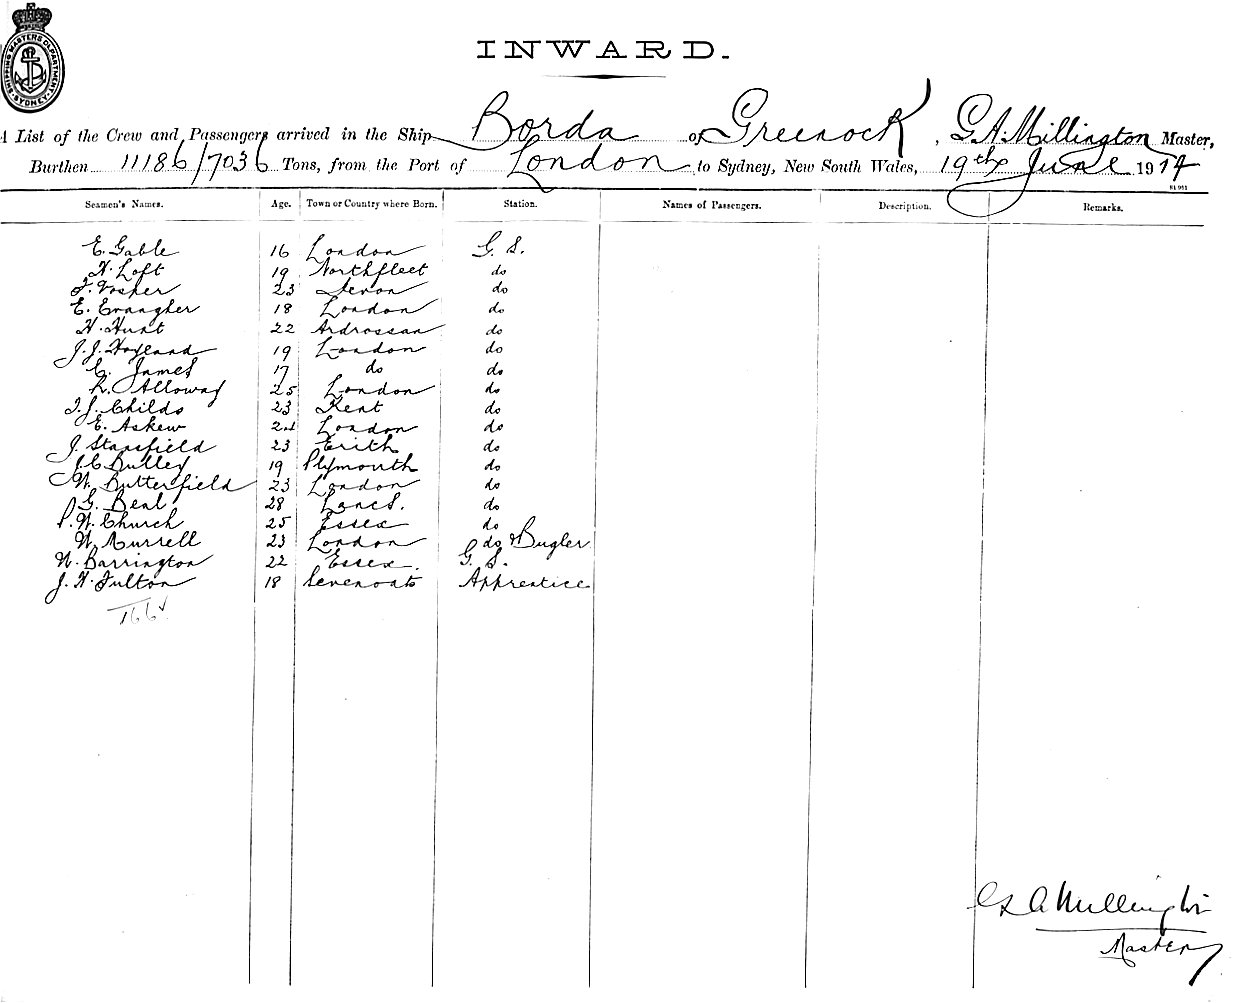 SHIPPING MASTERS DEPARTMENT SYDNEY
INWARD.
A List of the Crew and Passengers arrived in the Ship Borda of Greenock, G A Millington Master,
Burthen 11186/7036 Tons, from the Port of London to Sydney, New South Wales, 19th June 1914
Seamen's Names. Age. Town or Country where Born. Station. Names of Passengers. Description. Remarks.
E. Gable 16 London G. S.
H. Loft 19 Northfleet do
F. Vosper 23 Devon do
E. 18 London do
H. Hunt 22 Ardrossan do
J. J. Hoyland 19 London do
C. James 17 do do
Alloway 25 London do
Childs 23 Kent do
E. Askew London do
J. Stansfield 23 Erith do
J C Bulley 19 Plymouth do
W. Butterfield 23 London do
G. Beal 28 Lancs. do
P. W. Church 25 Essex do
W. Murrell 23 London do & Bugler
W. Barrington 22 Essex. G. S.
J. H. Fulton 18 Sevenoaks Apprentice
166
G A Millington
Master